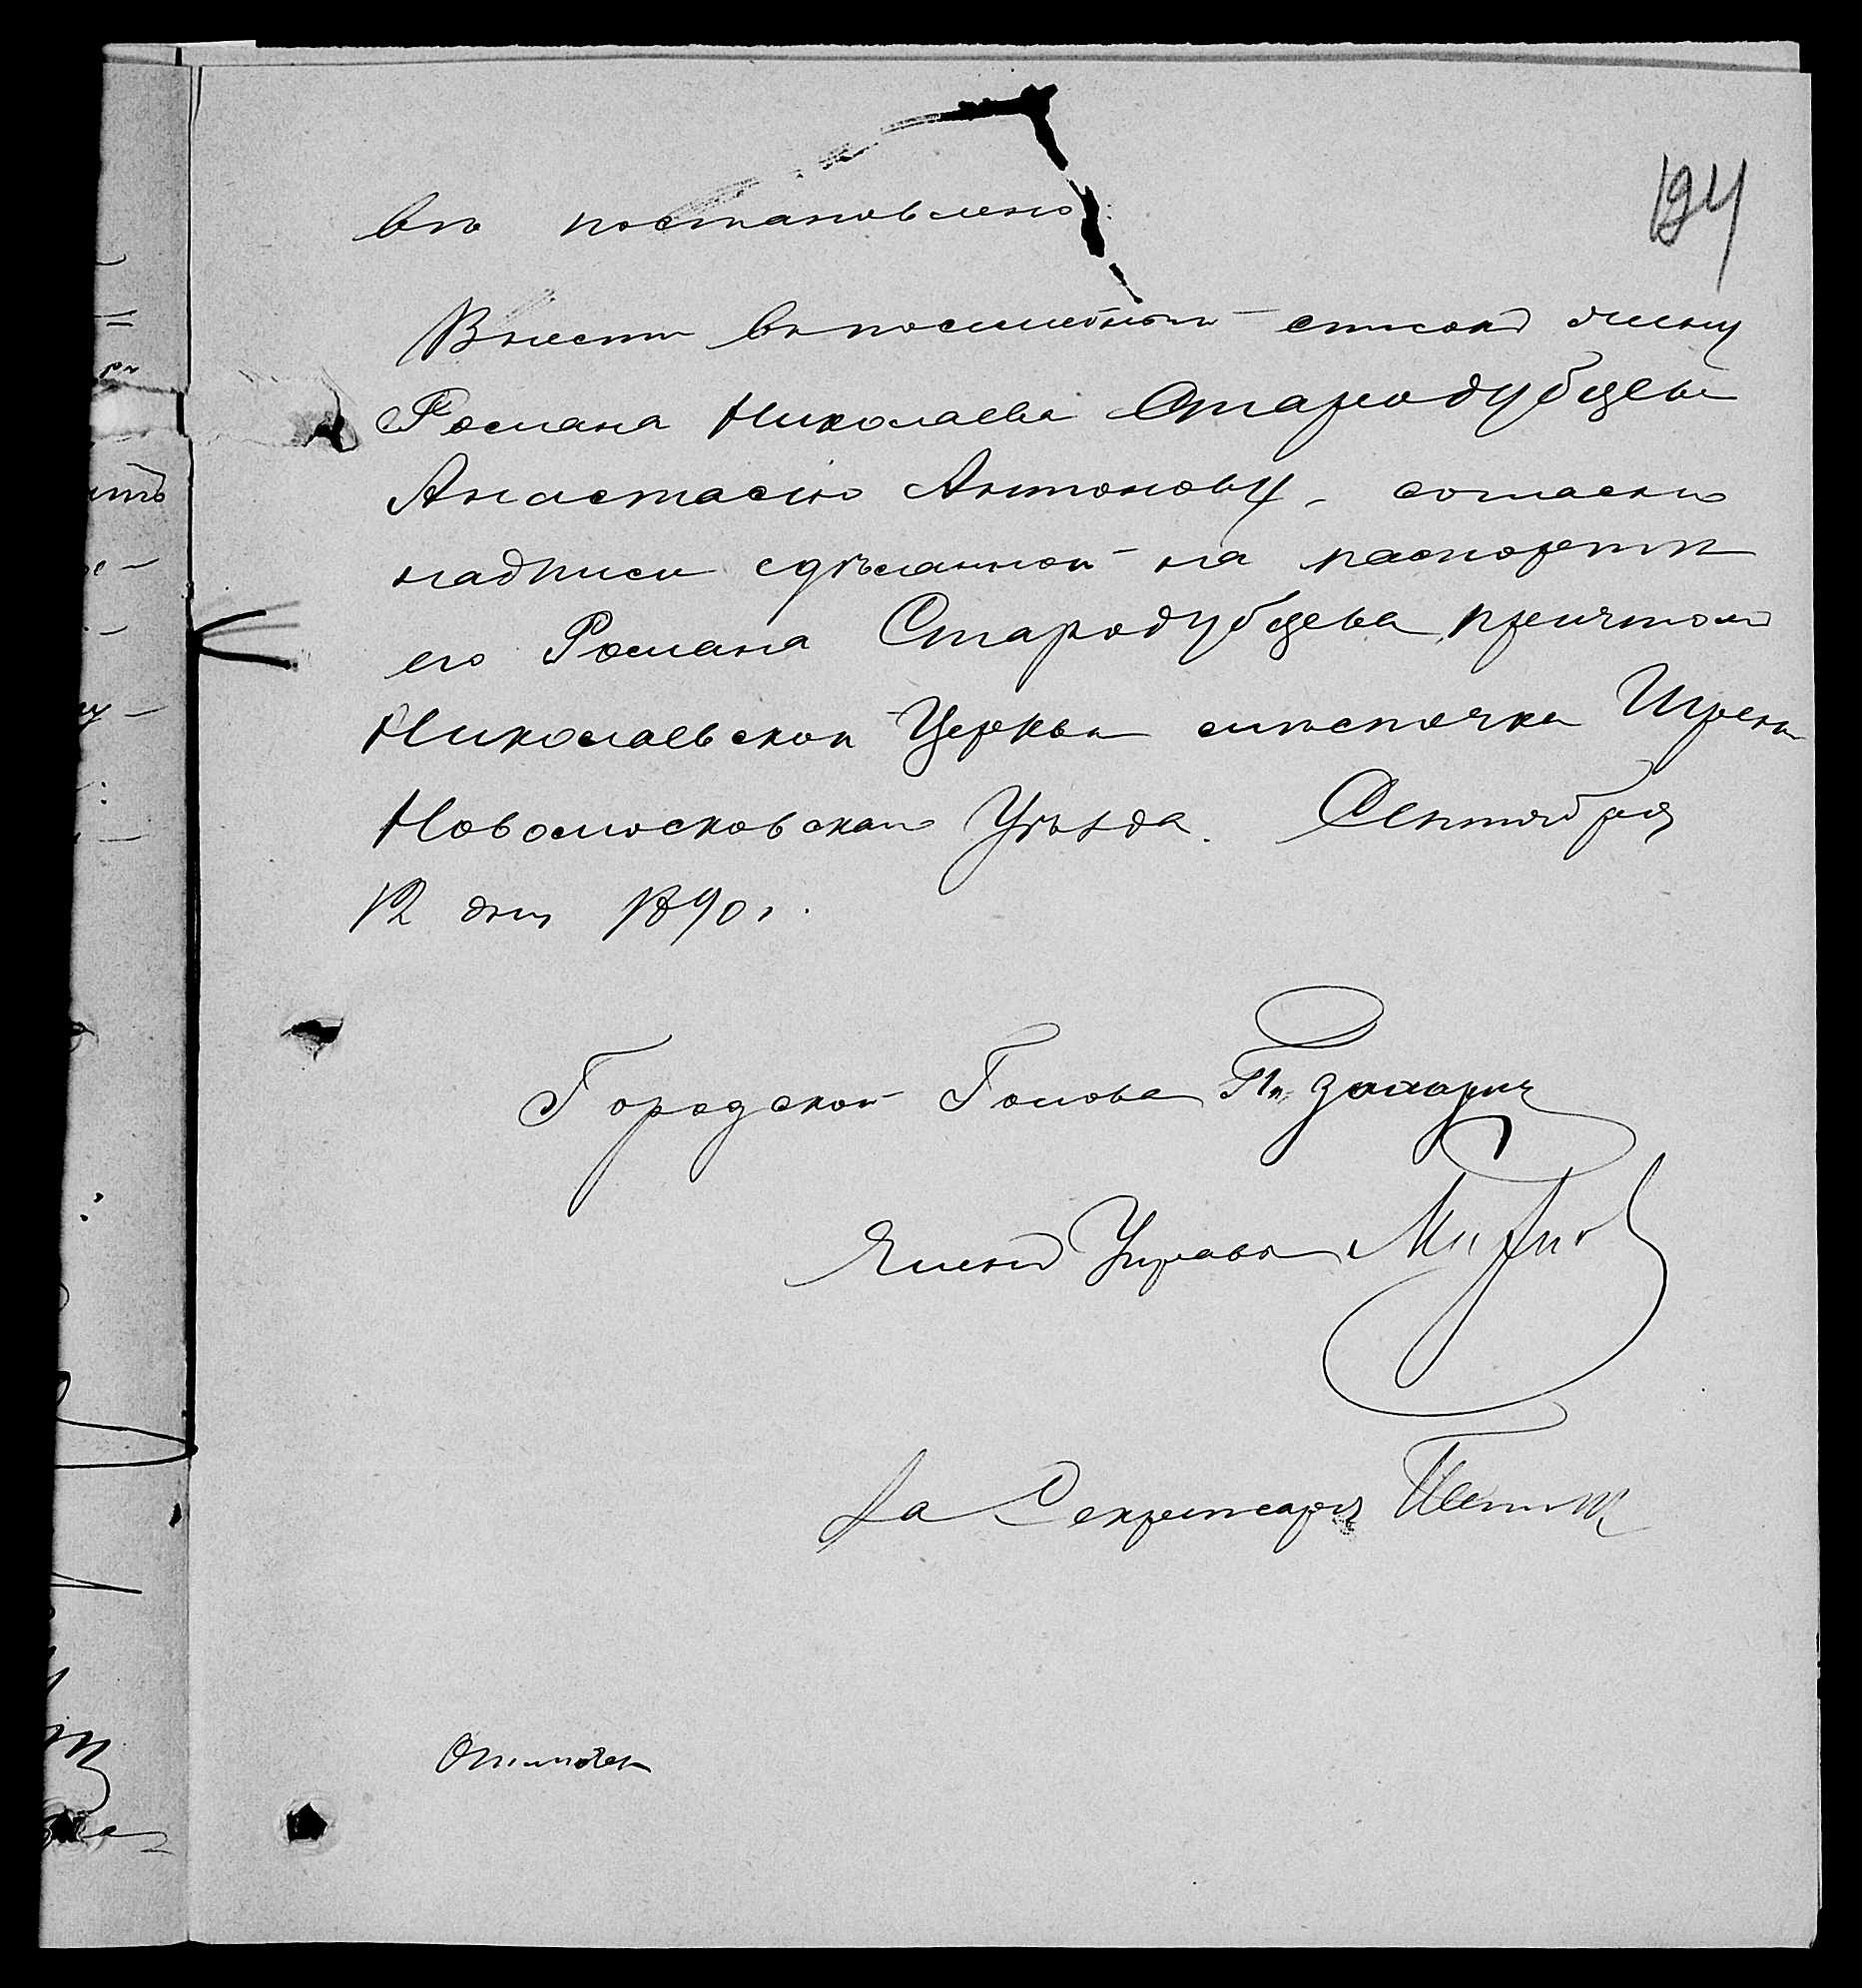 194
въ постановлено:
Внести въ посемейный списокъ жену
Романа Николаева Стародубцева
Анастасію Антонову, согласно
надписи сдѣланной на паспортѣ
его Романа Стародубцева, причтомъ
Николаевской Церкви мѣстечка
Новомосковскаго Уѣзда. Сентября
12 дня 1890 г.
Городской Голова
Членъ Управы
За Секретаря